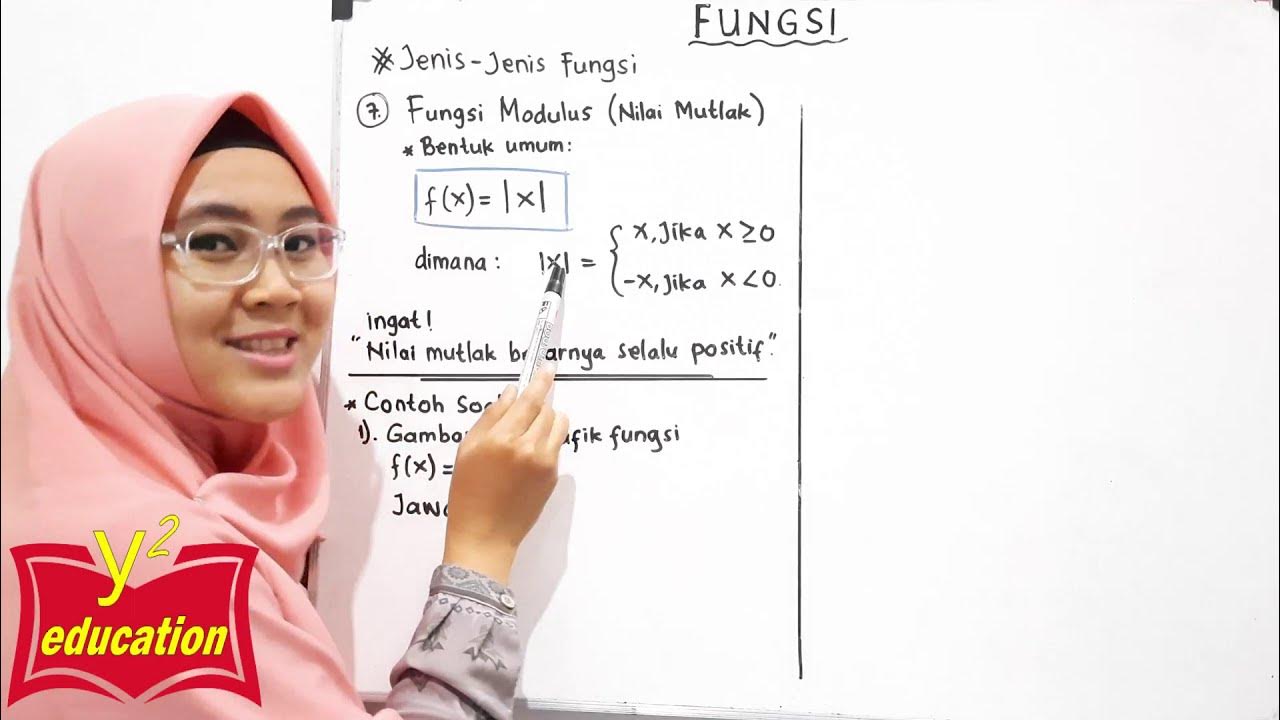 FUNGSI
* Jenis-Jenis Fungsi
7. Fungsi Modulus (Nilai Mutlak)
* Bentuk umum:
f(x) = |x|
dimana: |x| = { x, Jika x ≥ 0
-x, Jika x < 0.
ingat!
"Nilai mutlak selalu positif".
* Contoh
1). fungsi
f(x) =
y²
education